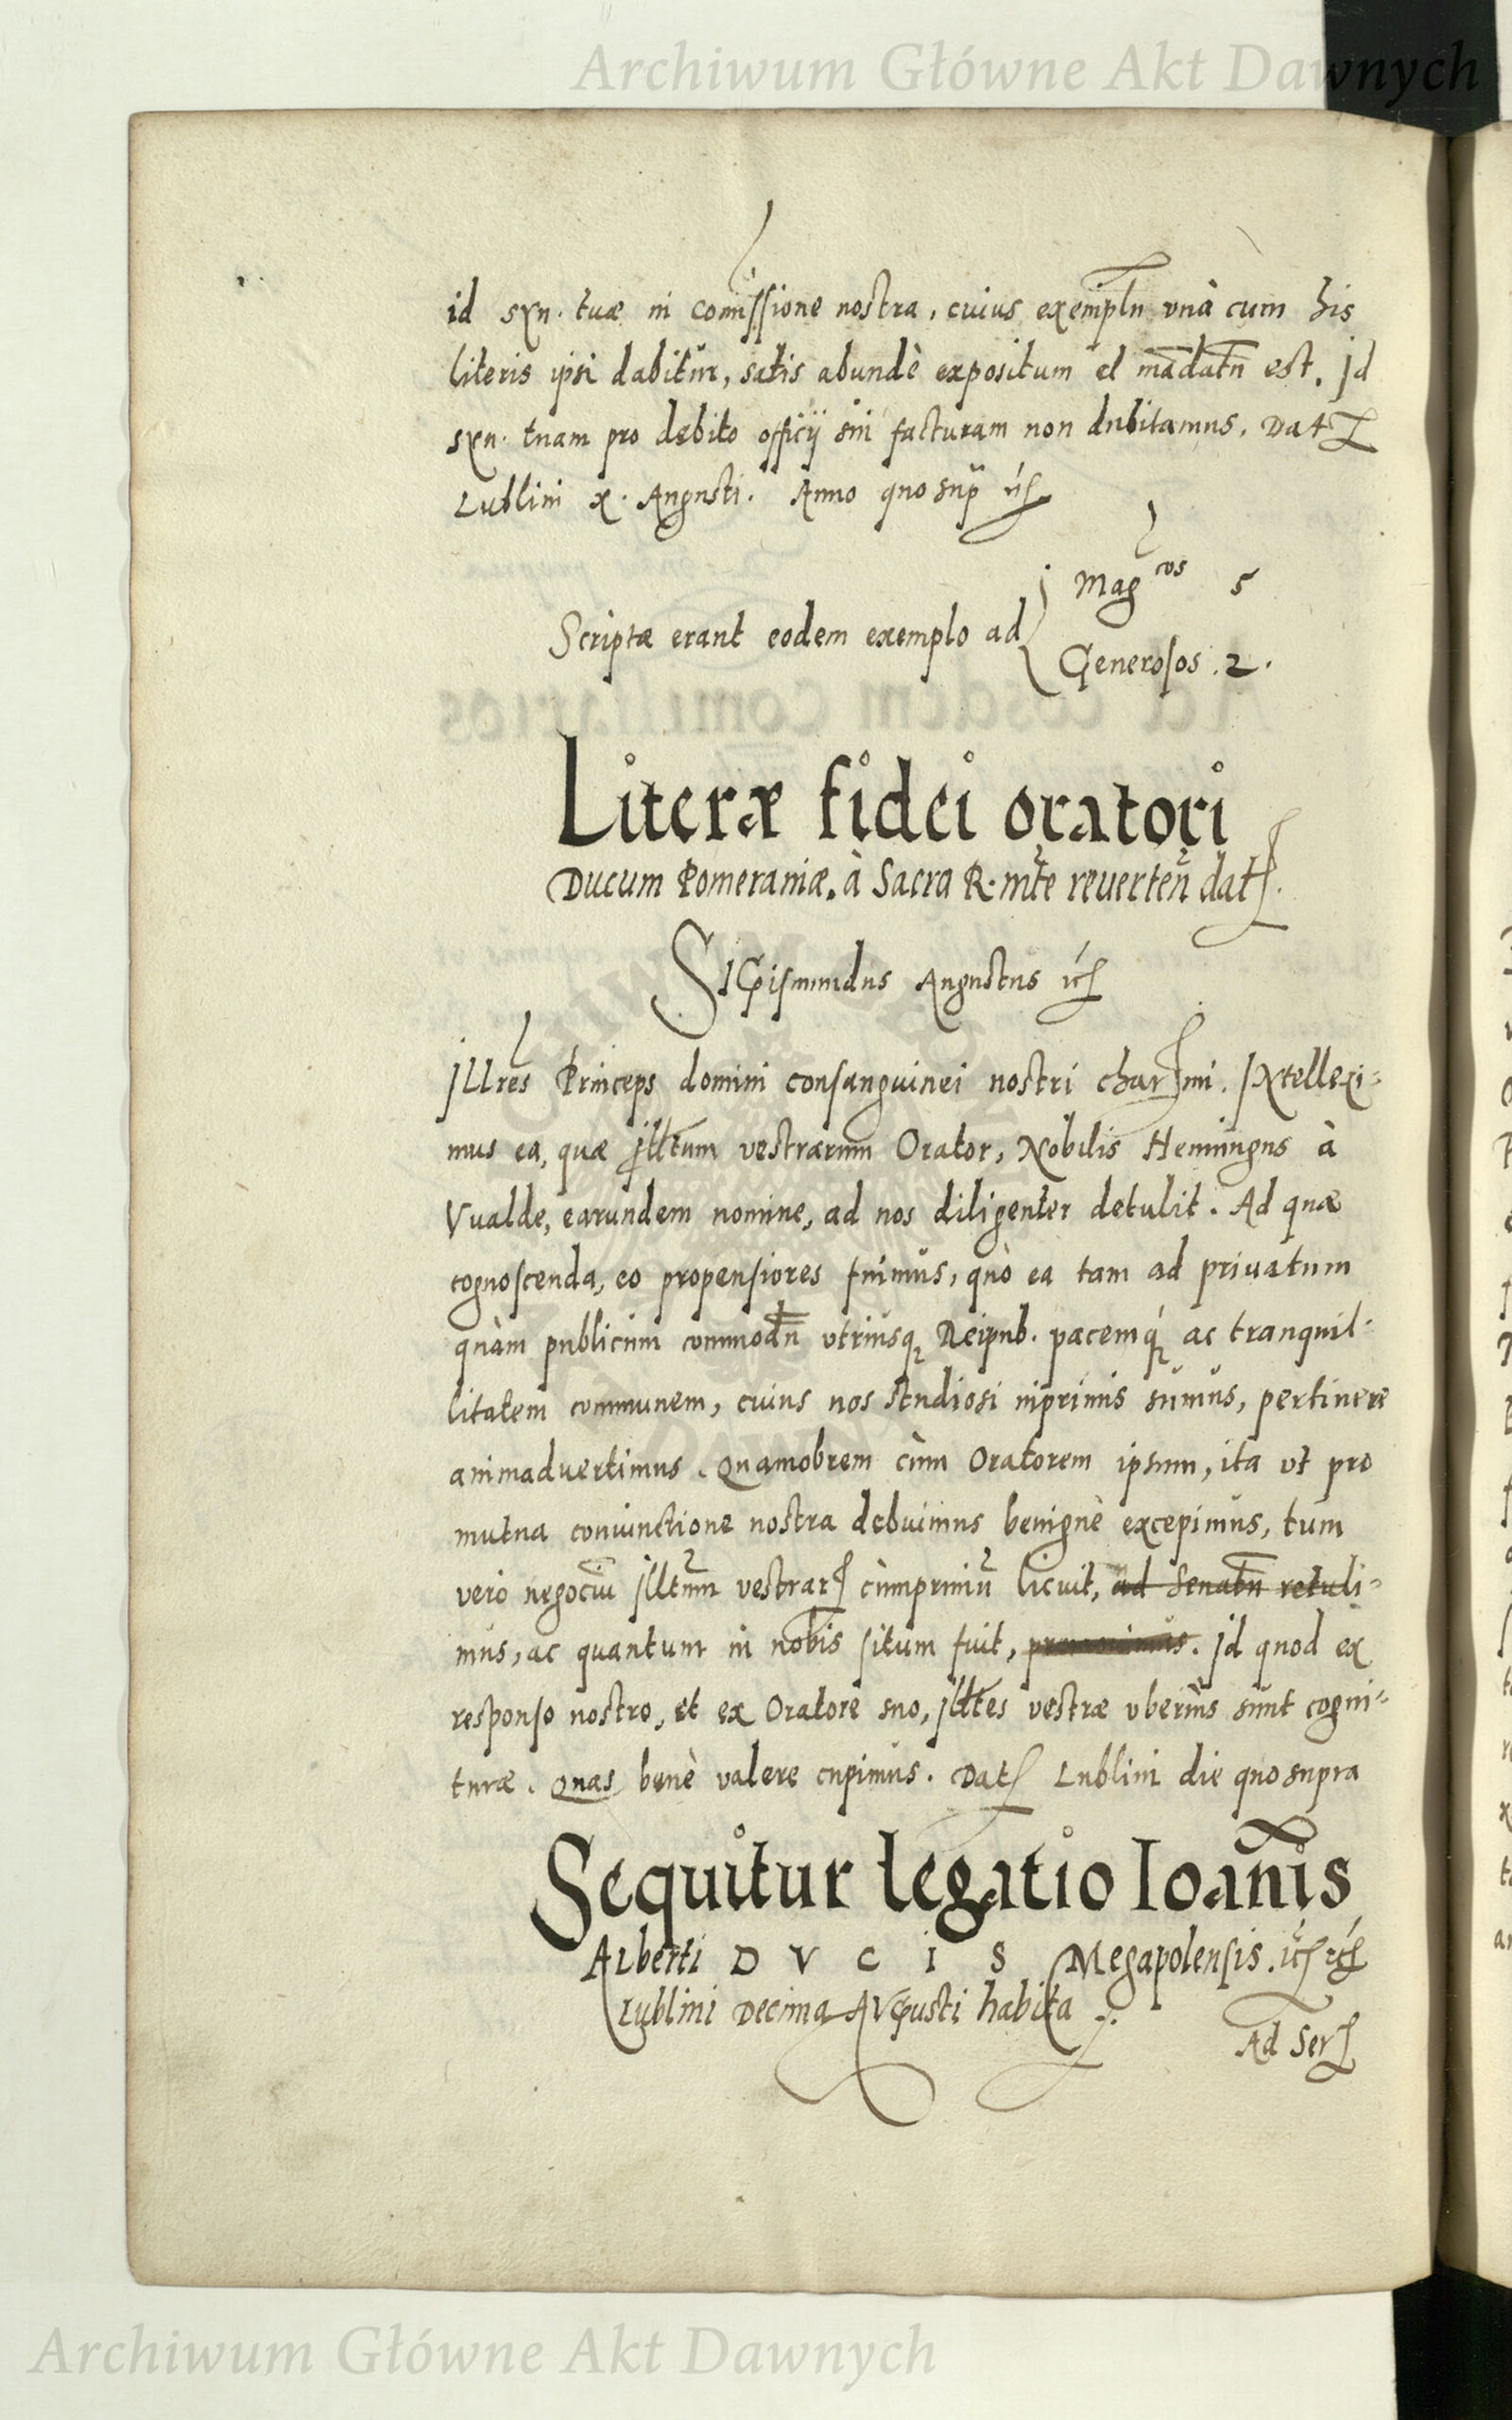 Archiwum Główne Akt Dawnych
id syn. tuæ in comissione nostra, cuius exemplu vnà cum his
literis ipsi dabitur, satis abundè expositum et mādatū est. Id
syn. tuam pro debito officij sui facturam non dubitamus. Dat
Lublini x. Augusti. Anno quo sup etc
Mag cos 5
Scriptæ erant eodem exemplo ad
Generosos . 2 .
Literæ fidei oratori
Ducum Pomeraniæ. à Sacra R. mte reuerten dat.
SIGismundus Augustus etc
Illres Princeps domini consanguinei nostri charmi. INtellexi-
mus ea, quæ Illtum vestrarum Orator, Nobilis Hemingus à
Vualde, earundem nomine, ad nos diligenter detulit. Ad quæ
cognoscenda, eo propensiores fuimus, quò ea tam ad priuatum
quàm publicum commodū vtriusq Reipub. pacemq́ ac tranquil-
litatem communem, cuius nos studiosi inprimis sumus, pertinere
animaduertimus. Quamobrem cùm Oratorem ipsum, ita vt pro
mutua coniunctione nostra debuimus benignè excepimus, tum
vero negociū Illtum vestrar cùmprimū licuit, ad Senatū retuli-
mus, ac quantum in nobis situm fuit, . Id quod ex
responso nostro, et ex Oratore suo, Illtes vestræ vberius sunt cogni-
turæ. Quas benè valere cupimus. Dat Lublini die quo supra
Sequitur legatio Ioānis
Alberti D V C I S Megapolensis. etc etc
Lublini Decima AVGusti habita
Ad Ser
Archiwum Główne Akt Dawnych